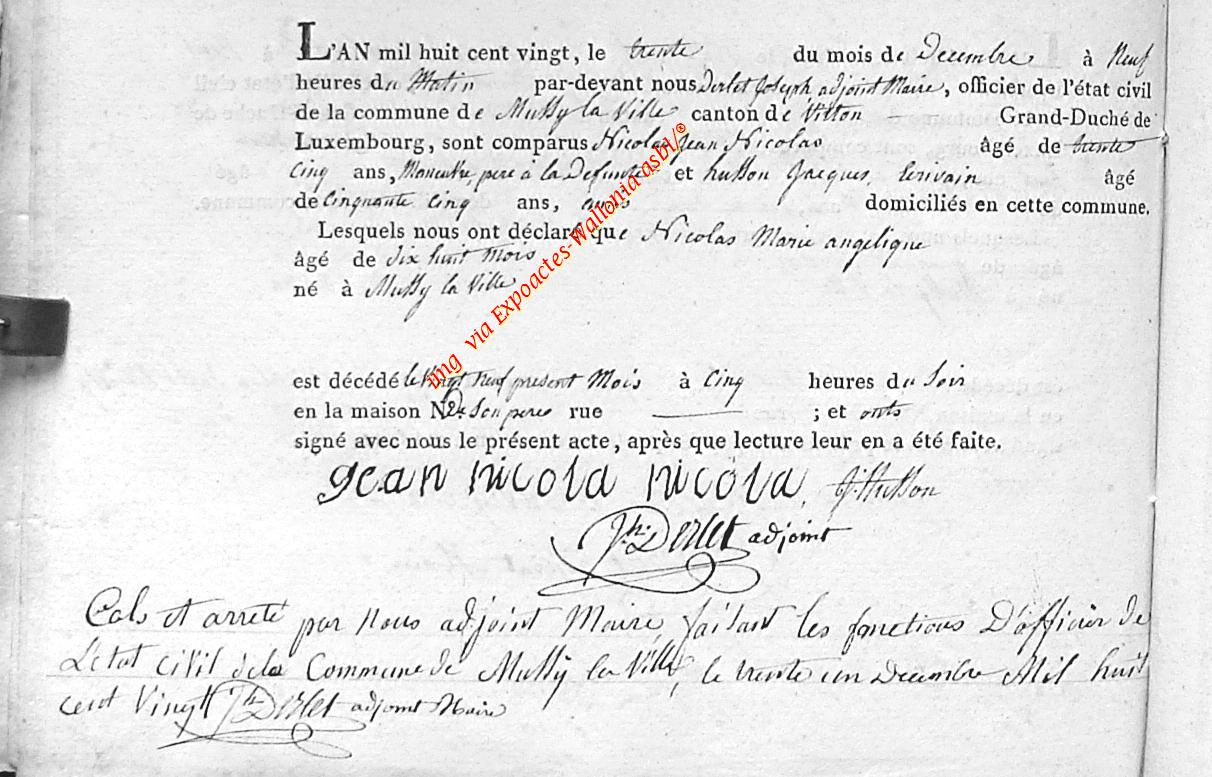 L'AN mil huit cent vingt, le trente du mois de Decembre à Neuf
heures du Matin par-devant nous Derlet Joseph adjoint Maire, officier de l'état civil
de la commune de Mussy la Ville canton de Virton Grand-Duché de
Luxembourg, sont comparus Nicolas Jean Nicolas âgé de trente
Cinq ans, pere à la Defunte et husson Jacques, Ecrivain âgé
de Cinquante Cinq ans, domiciliés en cette commune.
Lesquels nous ont déclaré que Nicolas Marie angelique
âgé de dix huit mois
né à Mussy la Ville
img via Expoactes-Wallonia asbl/®
est décédé le Vingt Neuf present Mois à Cinq heures du Soir
en la maison N de Son pere rue ; et onts
signé avec nous le présent acte, après que lecture leur en a été faite.
jean nicola nicola J. Husson
Jh. Derlet adjoint
Cals et arreté par Nous adjoint Maire, faisant les fonctions D'officier de
L'etat civil de la Commune de Mussy la Ville, le trente un Decembre Mil huit
cent Vingt Jh Derlet adjoint Maire